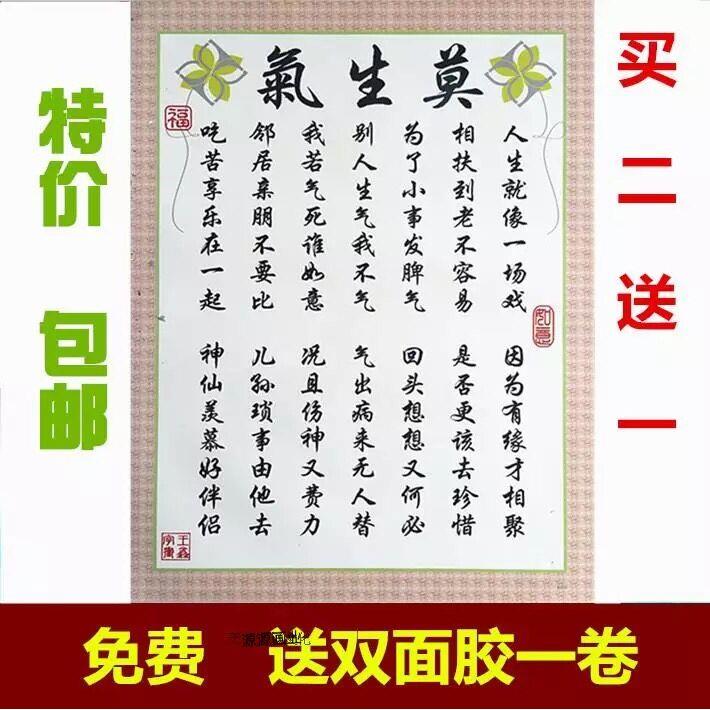 特价 包邮
买二送一
莫生氣
福
人生就像一场戏
因为有缘才相聚
相扶到老不容易
是否更该去珍惜
为了小事发脾气
回头想想又何必
别人生气我不气
气出病来无人替
我若气死谁如意
况且伤神又费力
邻居亲朋不要比
儿孙琐事由他去
吃苦享乐在一起
神仙羡慕好伴侣
如意
免费 送双面胶一卷